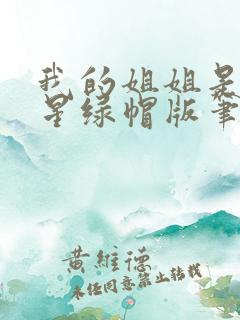 我的姐姐是
星绿帽版笔
黄维德
未经同意禁止转载